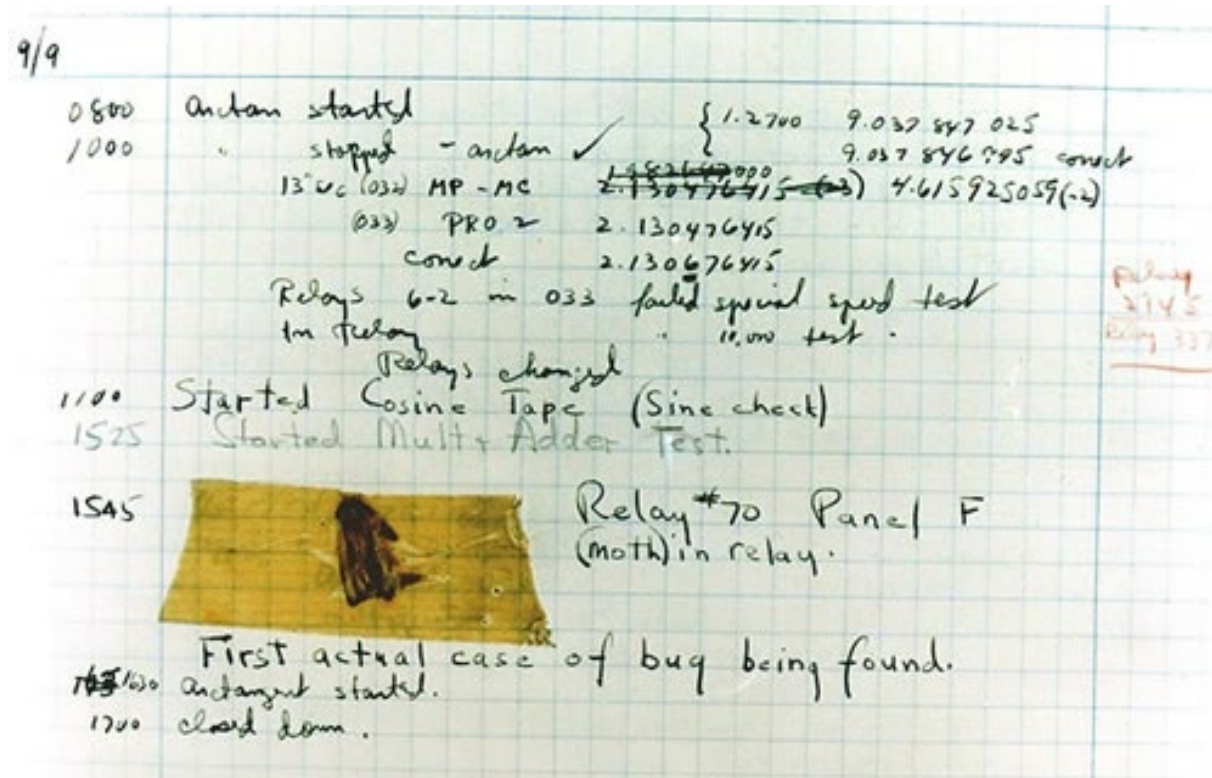 9/9
0800 Antan started
1000 " stopped - antan ✓ { 1.2700 9.037 847 025
9.037 846 795 correct
13"uc (032) MP - MC 2.130476415 4.615925059(-2)
(033) PRO 2 2.130476415
correct 2.130676415
Relays 6-2 in 033 failed special speed test
In Relay " 10,000 test .
Relay
2145
Relay 337
Relays changed
1100 Started Cosine Tape (Sine check)
1525 Started Mult + Adder Test.
1545 Relay #70 Panel F
(moth) in relay.
First actual case of bug being found.
1630 Antangent started.
1700 closed down.